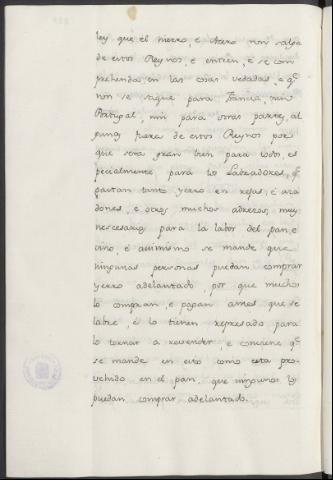 ley que el hierro, e Azero non salga
de estos Reynos, e entren, e se com
prehenda, en las cosas vedadas, e qᵉ
non se saque para Francia, nin
Portugal, nin para otras partes, al
gunas, fuera de estos Reynos por
que sera gran bien para todos, es
pecialmente para los Labradores, qᵉ
gastan tanto yerro en rejas, e aza
dones, e otros muchos adrezos, muy
nescesarios para la labor del pan, e
vino, é assimismo se mande que
ningunas personas puedan comprar
yerro adelantado, por que muchos
lo compran, e pagan antes que se
labre, é lo tienen represado para
lo tornar a revender, e conviene qᵉ
se mande en esto como esta pro
vehido en el pan, que ningunos lo
puedan comprar adelantado.